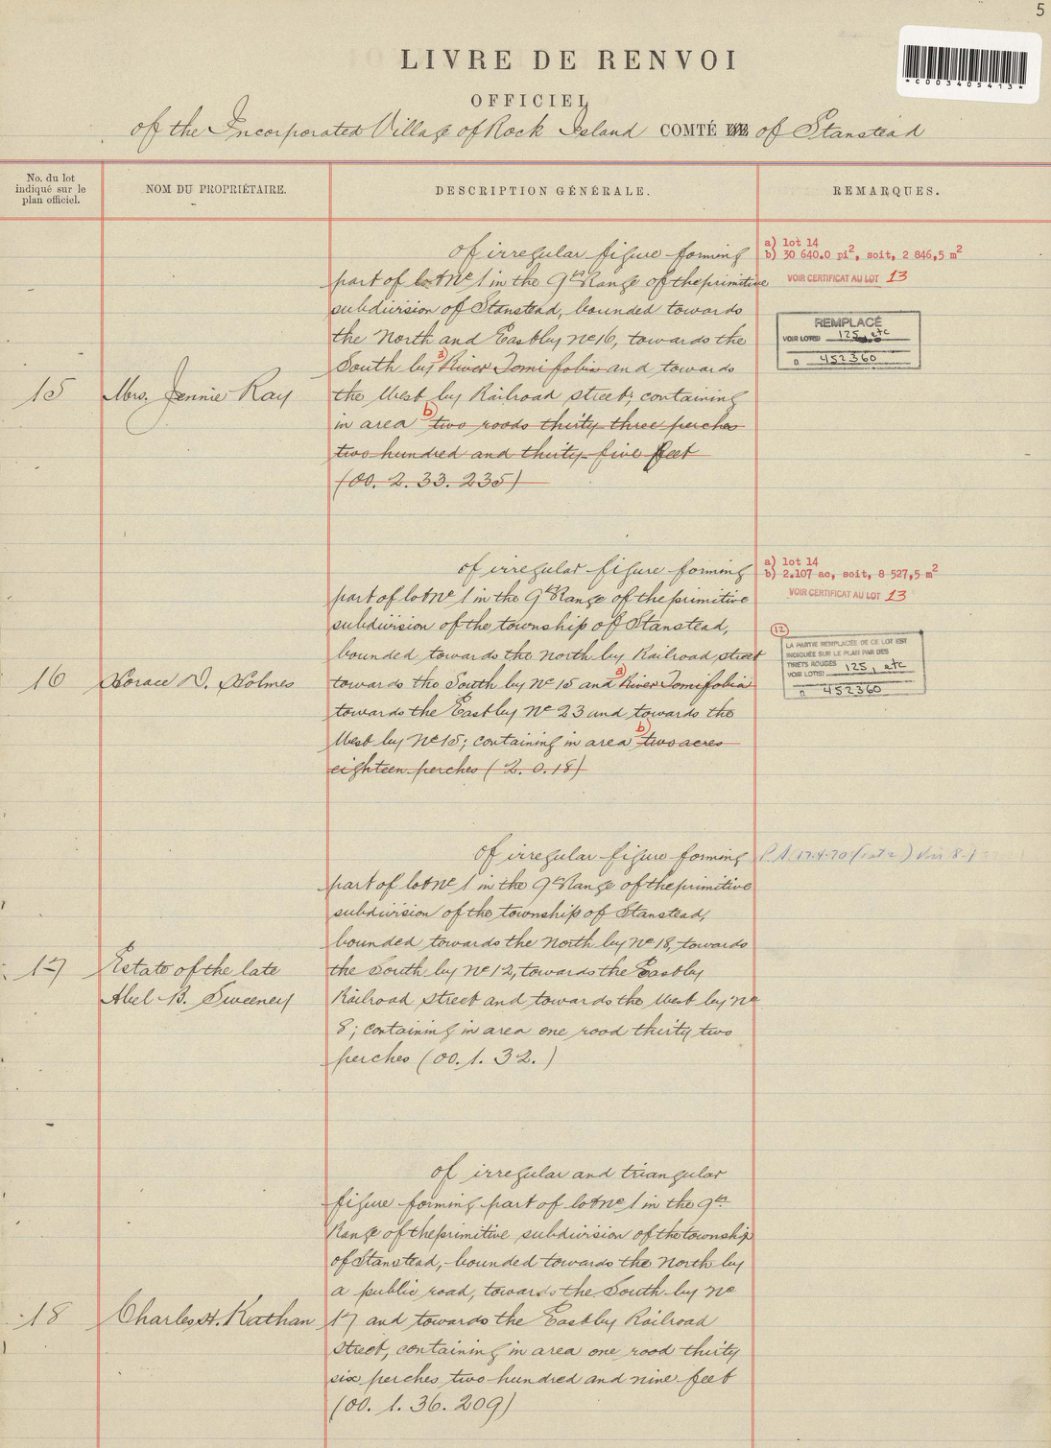 5
LIVRE DE RENVOI
*C003405413*
OFFICIEL
of the Incorporated Village of Rock Island COMTÉ DE of Stanstead
No. du lot
indiqué sur le
plan officiel.
NOM DU PROPRIÉTAIRE.
DESCRIPTION GÉNÉRALE.
REMARQUES.
15
Mrs. Jennie Ray
of irregular figure forming
part of lot No 1 in the 9th Range of the primitive
subdivision of Stanstead, bounded towards
the North and East by No 16, towards the
South by a) River Tomifobia and towards
the West by Railroad street; containing
in area b) two roods thirty three perches
two hundred and thirty-five feet
(00. 2. 33. 235)
a) lot 14
b) 30 640.0 pi2, soit, 2 846,5 m2
VOIR CERTIFICAT AU LOT 13
REMPLACÉ
VOIR LOT(S) 125, etc
D 452360
16
Horace D. Holmes
of irregular figure forming
part of lot No 1 in the 9th Range of the primitive
subdivision of the township of Stanstead,
bounded towards the North by Railroad street
towards the South by No 15 and a) River Tomifobia
towards the East by No 23 and towards the
West by No 15; containing in area b) two acres
eighteen perches (2. 0. 18)
a) lot 14
b) 2.107 ac, soit, 8 527,5 m2
VOIR CERTIFICAT AU LOT 13
12
LA PARTIE REMPLACÉE DE CE LOT EST
INDIQUÉE SUR LE PLAN PAR DES
TIRETS ROUGES
VOIR LOT(S) 125, etc
D 452360
17
Estate of the late
Abel B. Sweeney
of irregular figure forming
part of lot No 1 in the 9th Range of the primitive
subdivision of the township of Stanstead,
bounded towards the North by No 18, towards
the South by No 12, towards the East by
Railroad street and towards the West by No
8; containing in area one rood thirty two
perches (00. 1. 32.)
18
Charles H. Kathan
of irregular and triangular
figure forming part of lot No 1 in the 9th
Range of the primitive subdivision of the township
of Stanstead, bounded towards the North by
a public road, towards the South by No
17 and towards the East by Railroad
street, containing in area one rood thirty
six perches two hundred and nine feet
(00. 1. 36. 209)